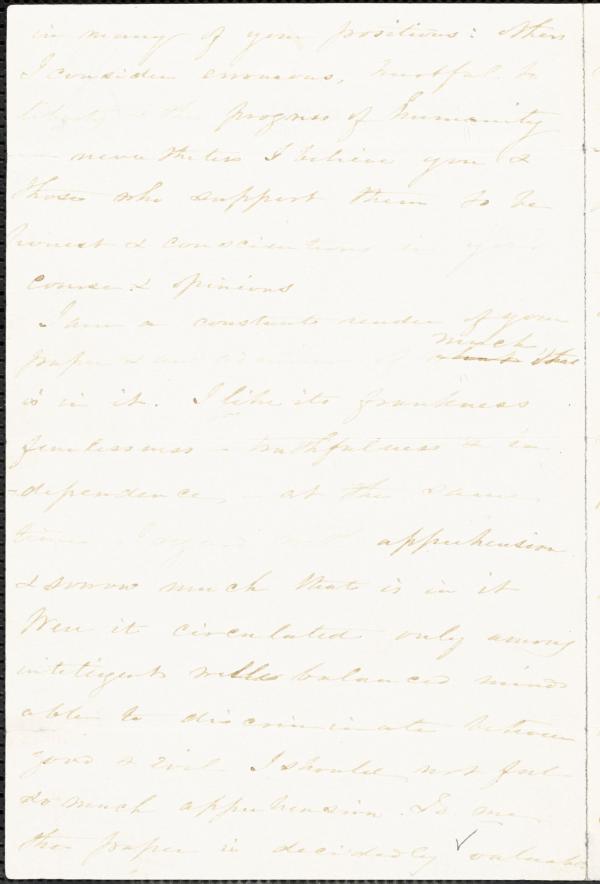 in many of your positions: others
I consider erroneous, hurtful to
liberty & the progress of humanity
— nevertheless I believe you &
those who support them to be
honest & conscientious in your
course & opinions
I am a constant reader of your
much
paper & an admirer of what there
is in it. I like its frankness
fearlessness — truthfulness & in
dependence, — at the same
time I regard with apprehension
& sorrow much that is in it
Were it circulated only among
intelligent well balanced minds
able to discriminate between
good & evil I should not feel
so much apprehension. To me
the paper is decidedly valuable